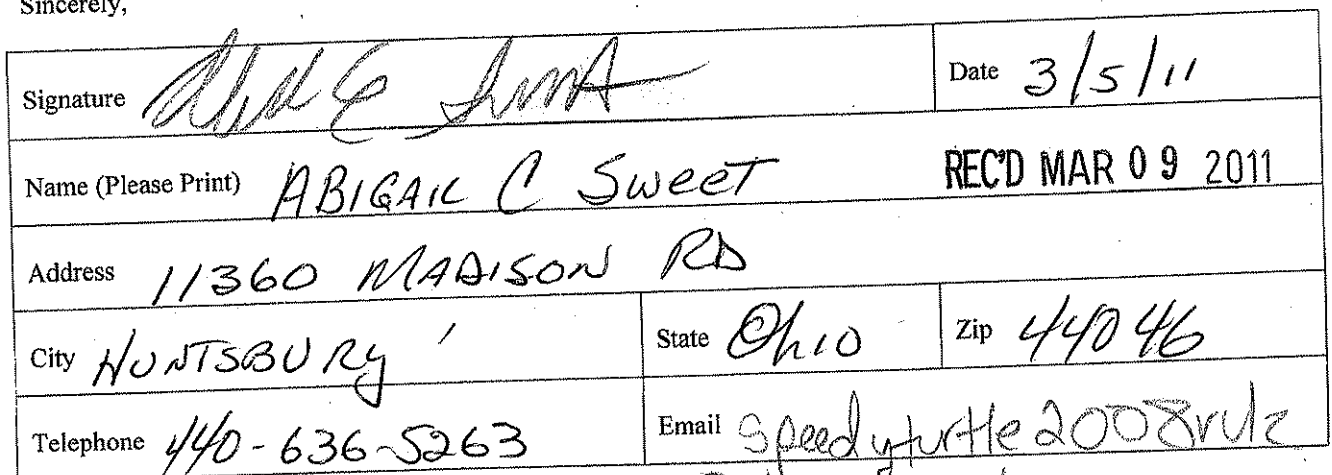 Sincerely,
Signature Date 3/5/11
Name (Please Print) ABIGAIL C Sweet REC'D MAR 09 2011
Address 11360 MADISON RD
City HUNTSBURY State Ohio Zip 44046
Telephone 440-636-5263 Email speedyturtle2008rulz